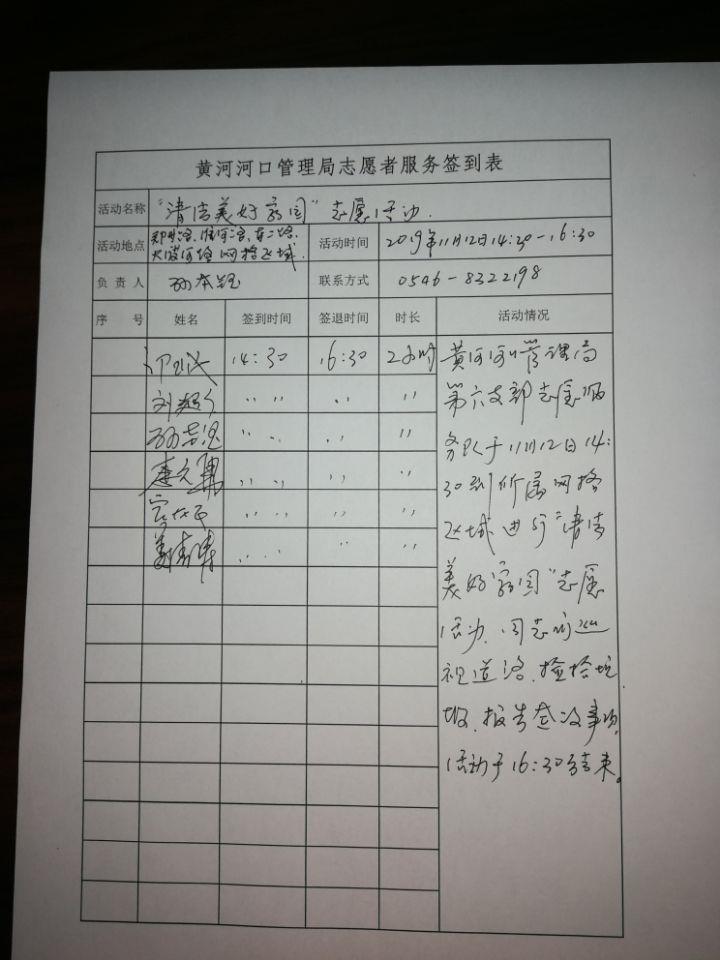 黄河河口管理局志愿者服务签到表
活动名称 "清洁美好家园"志愿活动.
活动地点 活动时间 2019年11月12日14:30-16:30
网格区域.
负责人 联系方式 0546-8322198
序号 姓名 签到时间 签退时间 时长 活动情况
14:30 16:30 2小时 黄河河口管理局
刘 〃 〃 〃 第六支部志愿服
孙 〃 〃 〃 务队于11月12日14:
〃 〃 〃 30到所属网格
〃 〃 〃 区域进行"清洁
姜 〃 〃 〃 美好家园"志愿
活动.同志们巡
视道路、捡拾垃
圾、报告 事项.
活动于16:30结束。